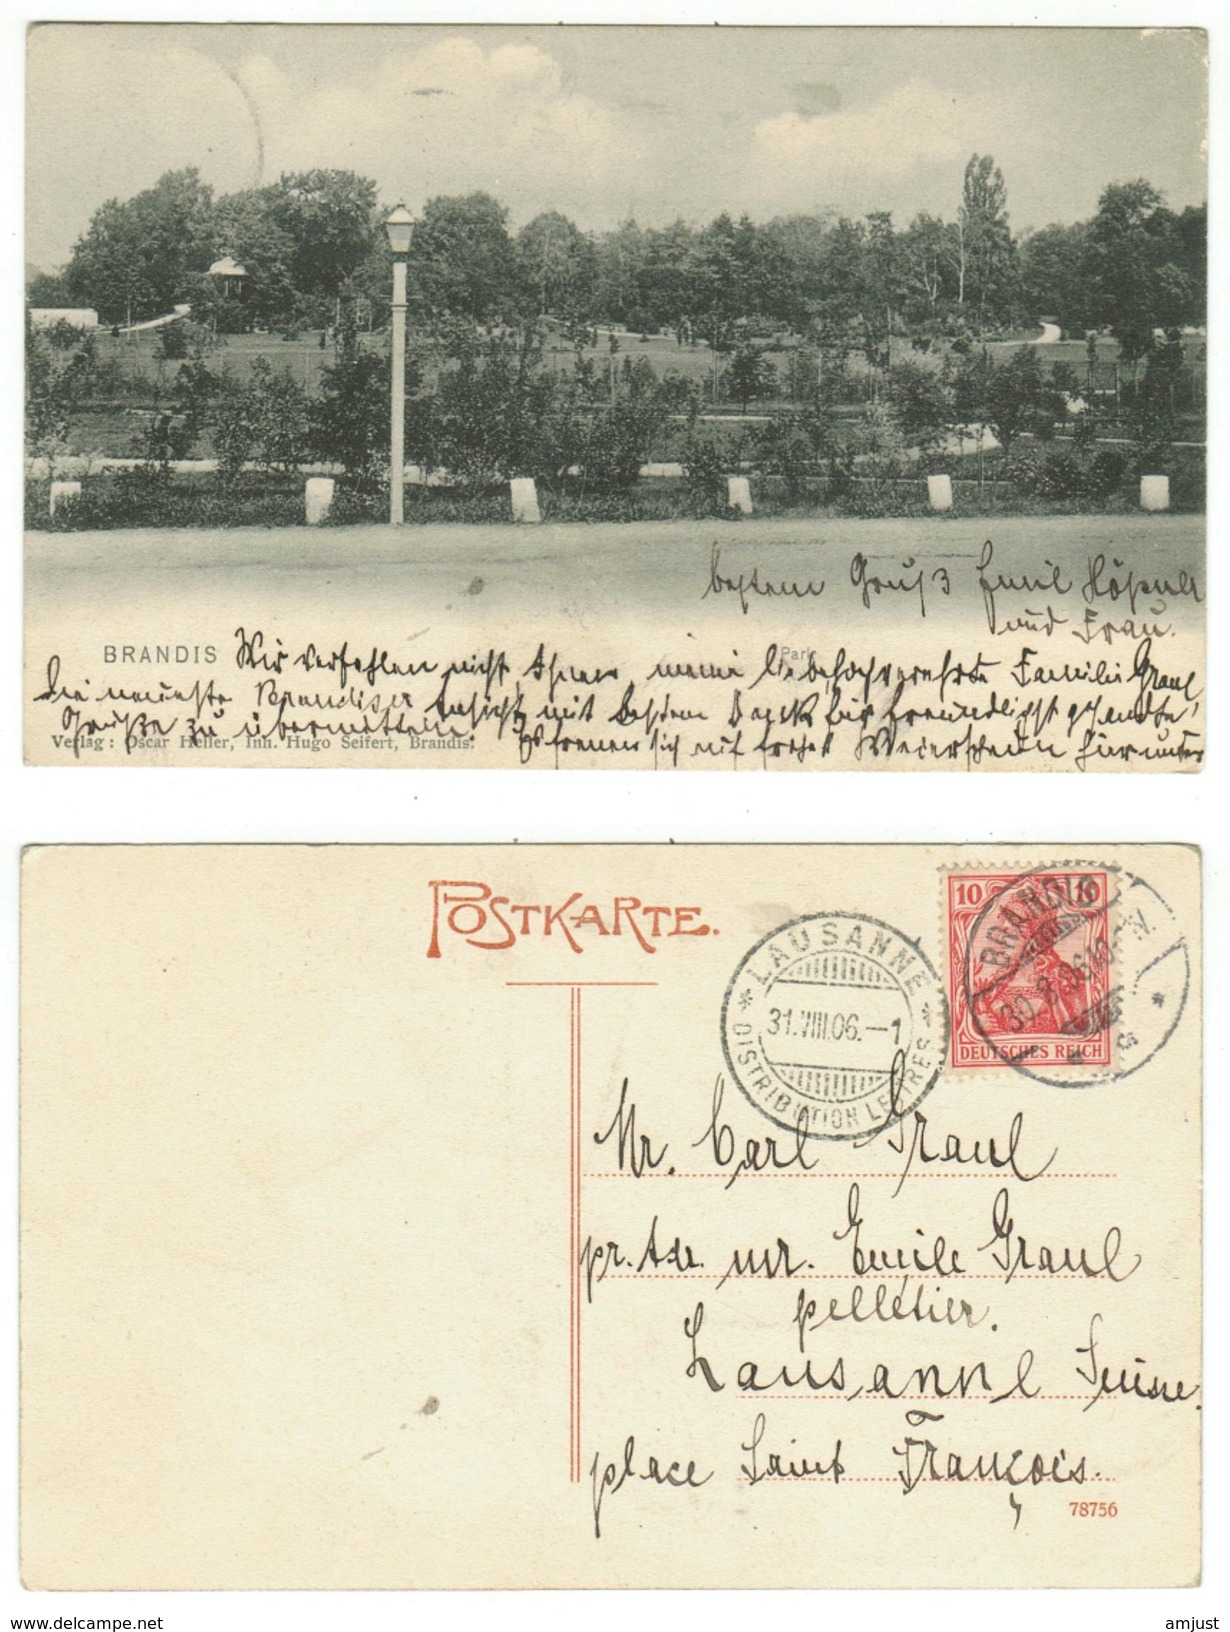 bestem Gruß Emil
und Frau.
BRANDIS
Park
Wir verfehlen nicht, Ihnen, meine liebe hochverehrte Familie Graul
die neueste Brandiser Ansicht mit bestem Dank für freundlichst gesandte
Grüße zu übermitteln.
Verlag: Oscar Heller, Inh. Hugo Seifert, Brandis.
POSTKARTE.
10 10
DEUTSCHES REICH
BRANDIS
30.8.06.10-11V.
LAUSANNE
31.VIII.06.-1
DISTRIBUTION LETTRES
Mr. Carl Graul
pr. Adr. mr. Emile Graul
pelletier.
Lausanne Suisse.
place Saint François.
78756
www.delcampe.net
amjust